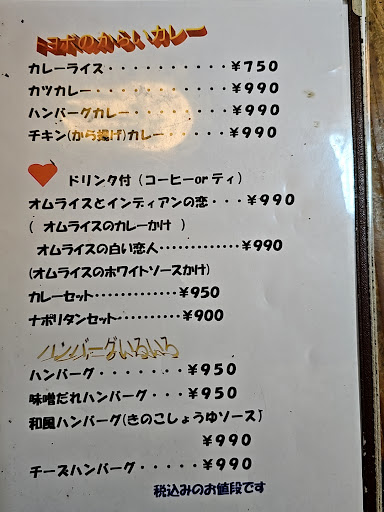 ミヨポのからいカレー
カレーライス・・・・・・・・・・￥７５０
カツカレー・・・・・・・・・・・￥９９０
ハンバーグカレー・・・・・・・・￥９９０
チキン(から揚げ)カレー・・・・・￥９９０
ドリンク付（コーヒーorティ）
オムライスとインディアンの恋・・・￥９９０
（ オムライスのカレーかけ ）
オムライスの白い恋人・・・・・・・・・・・・・￥990
(オムライスのホワイトソースかけ)
カレーセット・・・・・・・・・・・・・￥950
ナポリタンセット・・・・・・・・・・￥900
ハンバーグいろいろ
ハンバーグ・・・・・・・￥９５０
味噌だれハンバーグ・・・￥９５０
和風ハンバーグ(きのこしょうゆソース)
￥９９０
チーズハンバーグ・・・・・￥９９０
税込みのお値段です